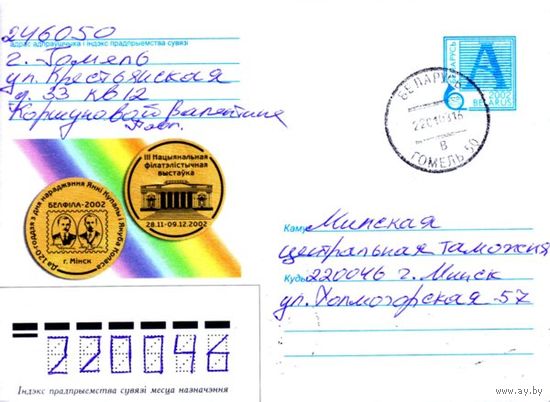 246050
адрас адпраўшчыка і індэкс прадпрыемства сувязі
г. Гомель
ул. Крестьянская
д. 33 кв 12
Коршуновой Валентине
БЕЛАРУСЬ
А
2002
BELARUS
БЕЛАРУСЬ
ГОМЕЛЬ 50
В
ІІІ Нацыянальная
філатэлістычная
выстаўка
28.11-09.12.2002
БЕЛФІЛА-2002
г. Мінск
Да 120-годдзя з дня нараджэння Янкі Купалы і Якуба Коласа
Каму Минская
центральная таможня
Куды 220046 г. Минск
ул. Холмогорская 57
220046
Індэкс прадпрыемства сувязі месца назначэння
www.ay.by